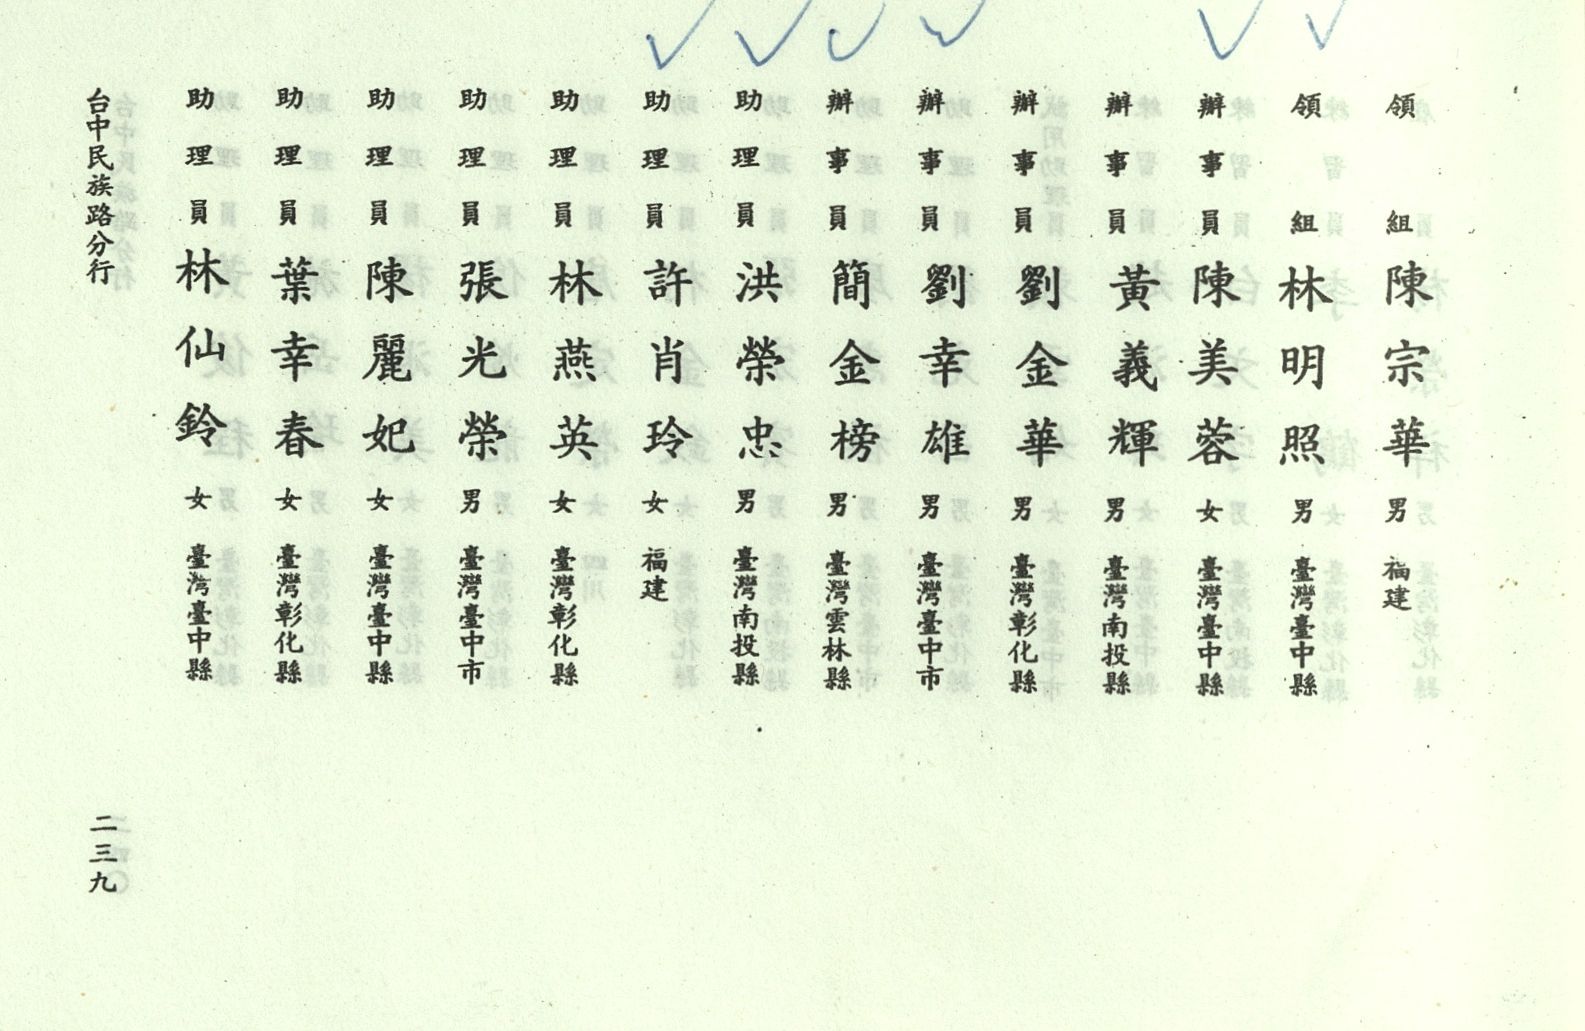 領組陳宗華男福建
領組林明照男臺灣臺中縣
辦事員陳美蓉女臺灣臺中縣
辦事員黃義輝男臺灣南投縣
辦事員劉金華男臺灣彰化縣
辦事員劉幸雄男臺灣臺中市
辦事員簡金榜男臺灣雲林縣
助理員洪榮忠男臺灣南投縣
助理員許肖玲女福建
助理員林燕英女臺灣彰化縣
助理員張光榮男臺灣臺中市
助理員陳麗妃女臺灣臺中縣
助理員葉幸春女臺灣彰化縣
助理員林仙鈴女臺灣臺中縣
台中民族路分行
二三九